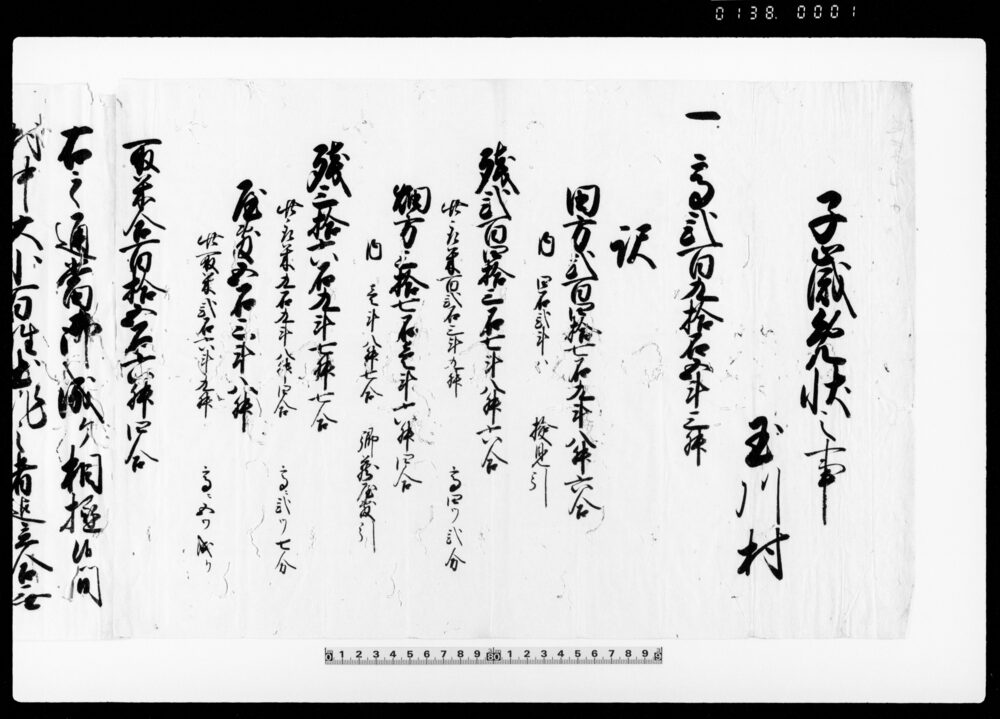 0138. 0001
子歳免状之事
玉川村
一 高弐百九拾石五斗三升
訳
田方弐百四拾七石九斗八升六合
内 四石弐斗 検見引
残弐百四拾三石七斗八升六合
此取米百弐石三斗九升 高四ツ弐分
畑方三拾七石壱斗六升四合
内 壱斗八升七合 郷蔵屋敷引
残三拾六石九斗七升七合
此取米九石九斗八升四合 高ニ弐ツ七分
屋敷五石三斗八升
此取米弐石六斗九升 高ニ五ツ成り
取米合百拾五石六升四合
右之通当御成ヶ相極候間
村中大小百姓出作之者迄立合
0 1 2 3 4 5 6 7 8 9 10 1 2 3 4 5 6 7 8 9